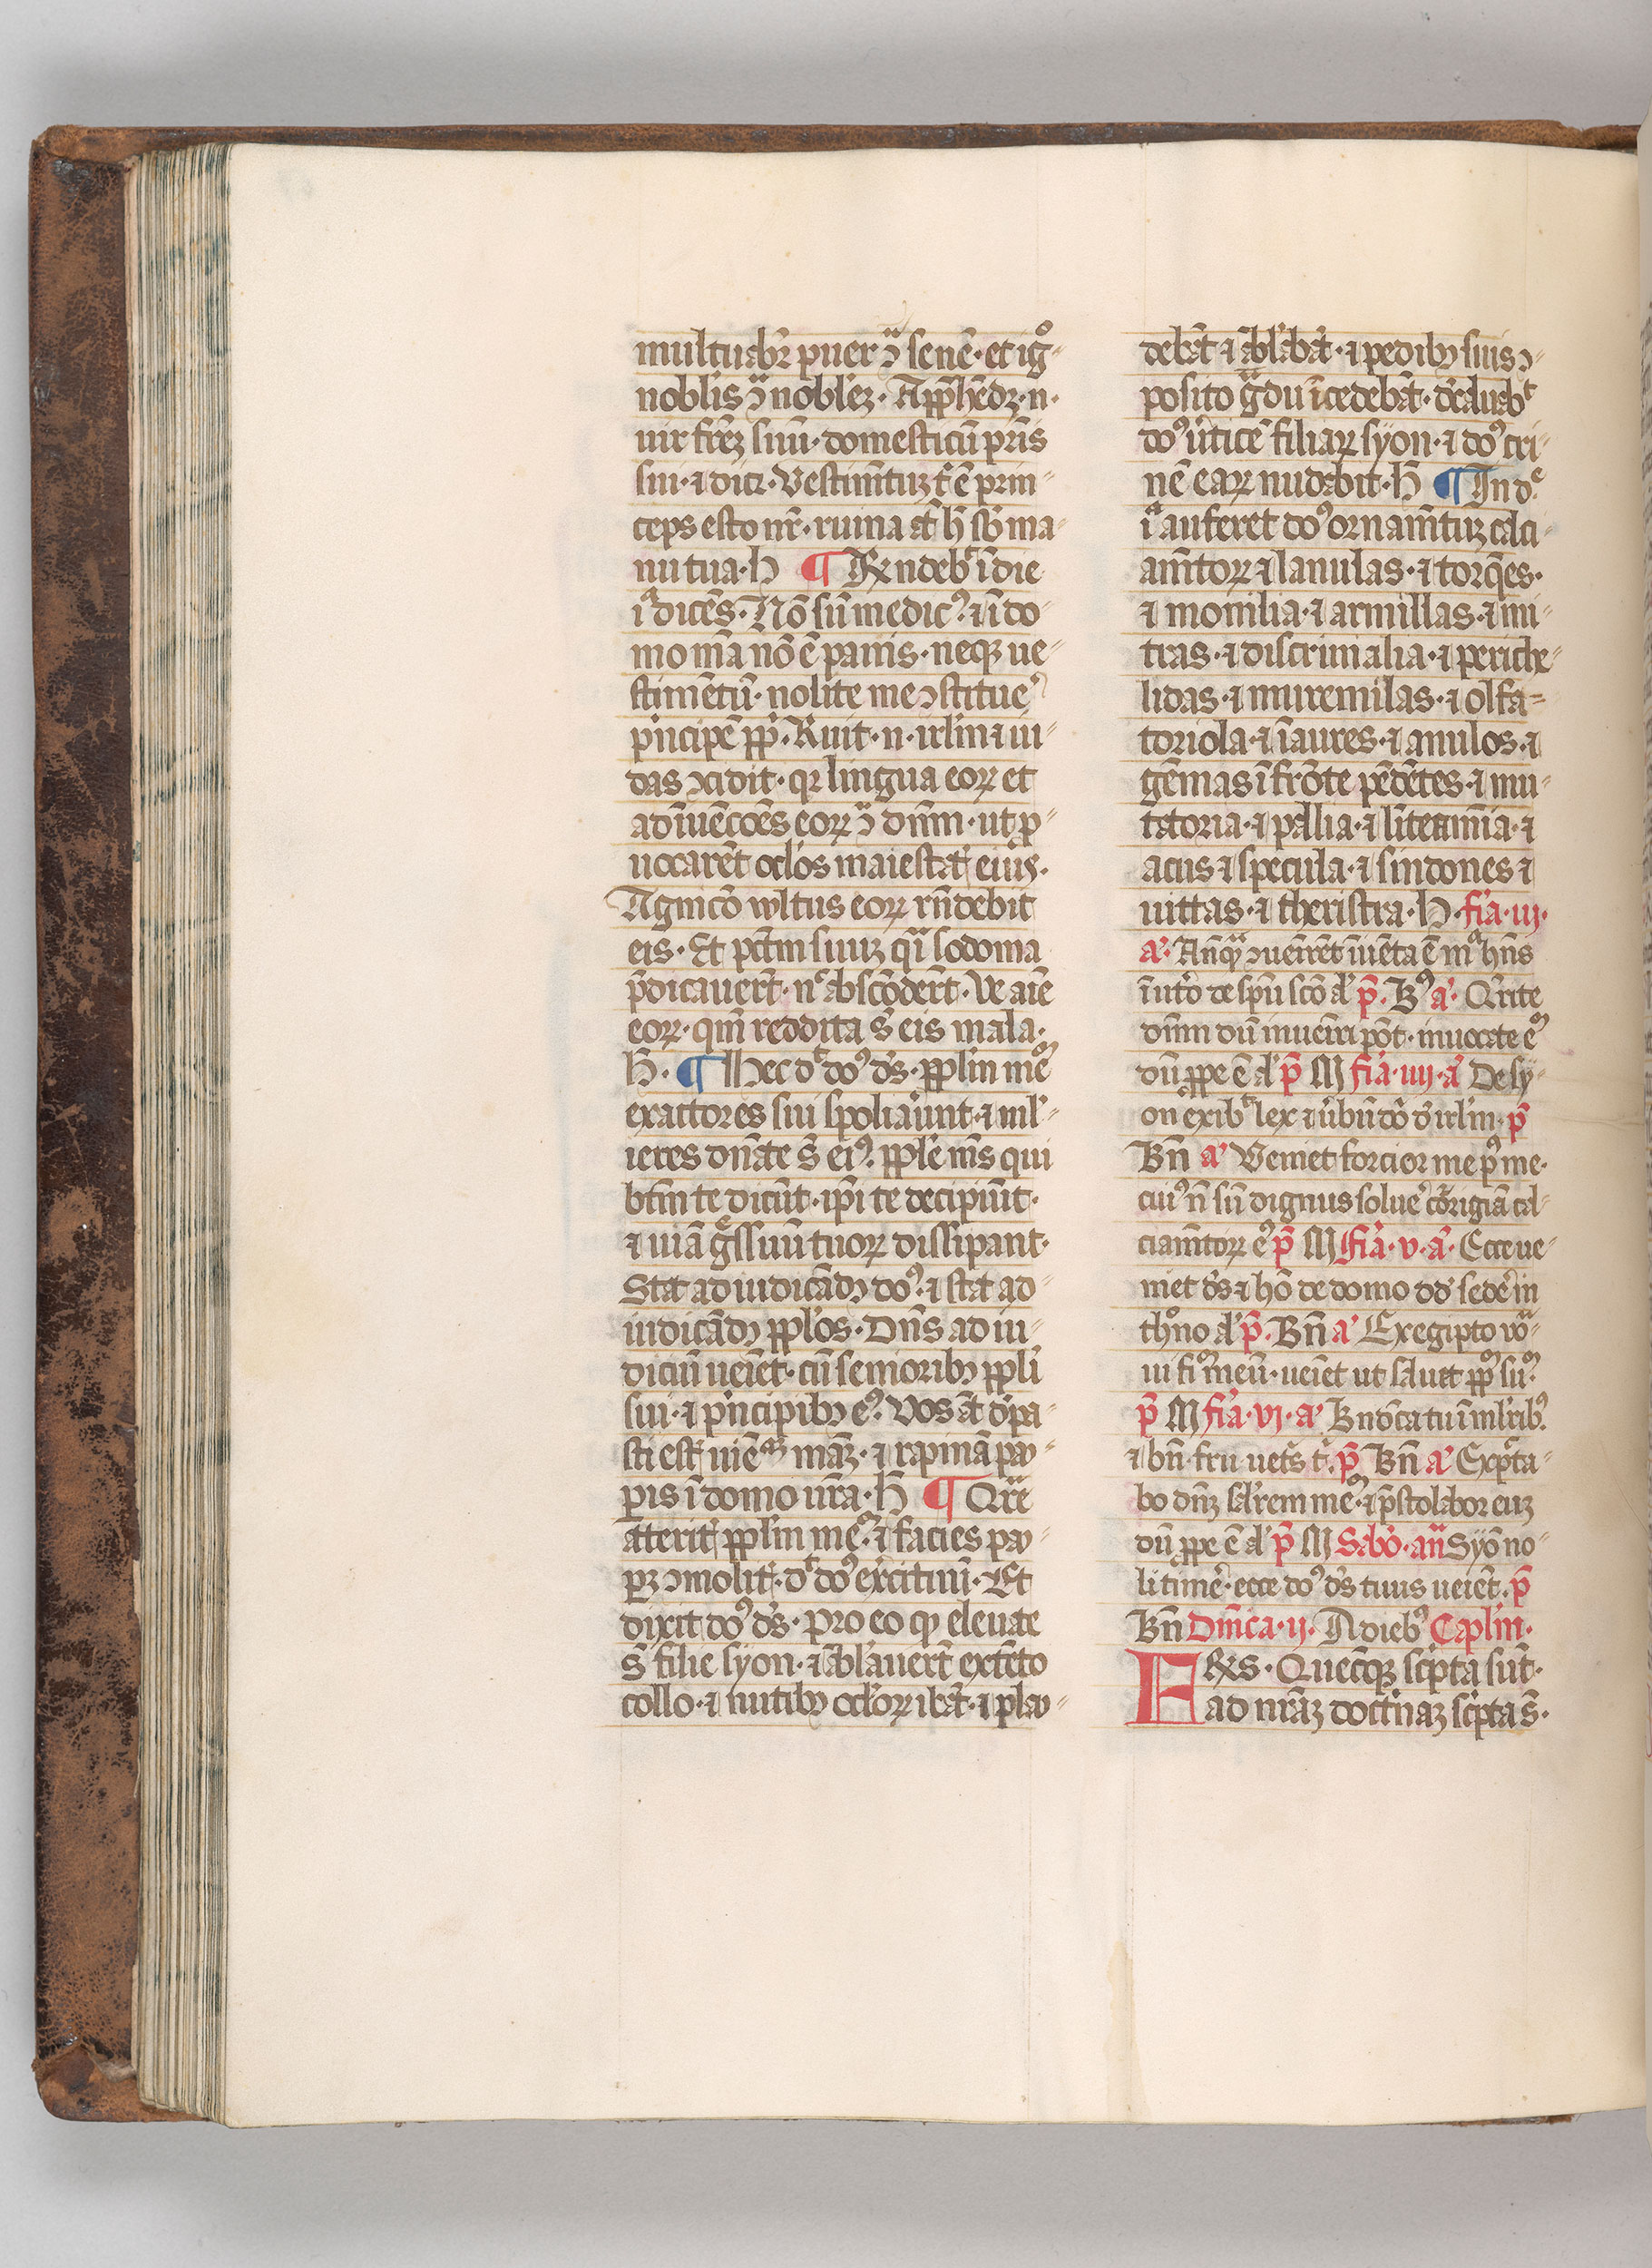 multuabr̄ puer ↄ̄ senē· et ig̊-
nobl'is ↄ̄ nobl'eꝫ· App̄hēdꝫ·n·
uir fr̄eꝫ suū· domesticū pr̄is
sui· ⁊ dict· Vestim̄tuꝫ t' ē prin-
ceps esto nr̄· ruina aūt h̄ sb̄ ma-
nu tua· h̄ ¶ Rx̄ndeb̄t ī die
iᵃ dicēs· Nō sū medicꝰ· ⁊ ī do-
mo m̄a nō ē panis· neqꝫ ue-
stimētū· nolite me ↄstitue᷑
p'ncipē pp̄l'· Ruit·n·irl'm ⁊ iu-
das ↄcidit· qꝛ lingua eoꝝ et
adīuēcōes eoꝝ ↄ̄ dn̄m· ut ꝓ-
uocarēt ocl'os maiestat' eius·
Agnicō wltus eoꝝ rn̄debit
eis· Et pctm̄ suuꝫ qᷓi sodoma
p̄dicauer̄t· n̄ᶜ abscōder̄t· Ve aīe
eoꝝ· qm̄ reddita s̄ eis mala·
h̄· ¶ Hec d᷑ doꝰ d's· ppl'm meū
exactores sui spoliauūnt· ⁊ ml'-
ieres dn̄ate s̄ eiꝰ· pple m̄s qui
btm̄ te dicūt· ip̄i te decipiūt·
⁊ uiā gͤssuū tuoꝝ dissipant·
Stat ad iudicādꝫ doꝰ· ⁊ stat ad
iudicādꝫ ppl'os· Dn̄s ad iu-
diciū ueīet· cū senioribꝫ ppl'i
sui· ⁊ p'ncipibꝫ eꝰ· Vos at̄ d'pa-
sti est' uīeᵃᵐ māꝫ· ⁊ rapinā pau-
peris ī domo ur̄a· h̄ ¶ Qr̄e
atterit' ppl'm meū· ⁊ facies pau-
peꝝ ↄmolit'· d᷑ doꝰ ex'cituū· Et
dixit doꝰ d's· Pro eo qꝫ eleuate
s̄ filie syon· ⁊ ābl'auer̄t extēto
collo· ⁊ nutibꝫ ocl'oꝝ ibāt· ⁊ plau-
debāt ⁊ ābl'abāt· ⁊ pedibꝫ suis ↄ-
posito gᷓdu īcedebāt· decaluabͭ
doꝰ u'ticē filiaꝝ syon· ⁊ doꝰ cri-
nē eaꝝ nudabit· h̄ ¶ In d'ͤ
iᵃ auferet doꝰ ornam̄tuꝫ calci-
am̄toꝝ ⁊ lanulas· ⁊ torq̄es·
⁊ monilia· ⁊ armillas· ⁊ mi-
tras· ⁊ discriminalia· ⁊ periche-
lidas· ⁊ murenulas· ⁊ olfa-
toriola· ⁊ īaures· ⁊ anulos· ⁊
gēmas ī frōte pēdētes· ⁊ mu-
tatoria· ⁊ pallia· ⁊ līteamīa· ⁊
acus ⁊ specula· ⁊ sindones ⁊
uittas· ⁊ theristra· h̄· fīa· iij·
a'· Anqᷓꝫ ↄuenirēt īuēta ē mᷓ hn̄s
īut'o de spū scō al' p̄· Bs̄ a'· Qr̄ite
dn̄m dū inueniri pōt· inuocate eū
dū ꝓpe ē al' p̄ M fīa· iiij· a' De sy-
on exibͭ lex ⁊ u'bū dn̄i d' irl'm· p̄
Bn̄ a' Veniet forcior me pꝰ me·
cuiꝰ n̄ sū dignus solue᷑ corrigiā cal-
ciam̄toꝝ eꝰ p̄ M fīa· v· a'· Ecce ue-
niet d's ⁊ hō de domo dd' sede᷑ in
thr̊no al' p̄· Bn̄ a' Ex egipto uoca-
ui fi'm meū· ueīet ut saluet ppl'm suū·
p̄ M fīa· vi· a' Bn̄dc̄a tu ī ml'ribꝰ·
⁊ bn̄· fru· uet's t'· p̄ Bn̄ a' Expc̄ta-
bo dn̄ꝫ sal'rem meū· ⁊ p̄stolabor euꝫ
dū ꝓpe ē al' p̄ M Sabb'o· an̄ Syō no-
li time᷑· ecce doꝰ d's tuus ueīet· p̄
Bn̄ Dn̄ica· ij· A diebꝰ Capl'm·
FRēs· Quecūqꝫ sc'pta sūt·
ad nr̄aꝫ doct'naꝫ sc'pta s̄·